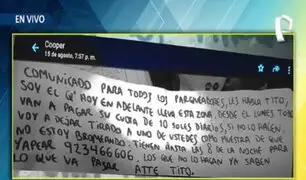 EN VIVO
Cooper
15 de agosto, 7:57 p. m.
COMUNICADO PARA TODOS LOS PARQUEADORES, LES HABLA TITO,
SOY EL Q' HOY EN ADELANTE LLEVA ESTA ZONA, DESDE EL LUNES TODOS
VAN A PAGAR SU CUOTA DE 10 SOLES DIARIOS, SI NO LO HACEN
VOY A DEJAR TIRADO A UNO DE USTEDES COMO MUESTRA DE QUE
NO ESTOY BROMEANDO. TIENEN HASTA LAS 8 DE LA NOCHE PARA
YAPEAR 923466606, LOS QUE NO LO HAGAN YA SABEN
LO QUE VA PASAR ATTE TITO.